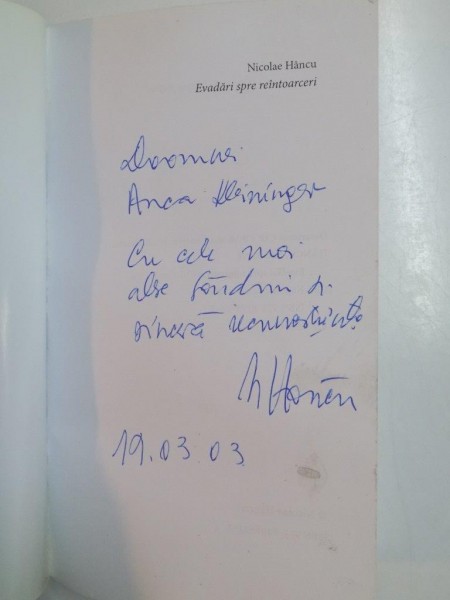 Nicolae Hâncu
Evadări spre reîntoarceri
Doamnei
Anca Kleininger
Cu cele mai
alese gânduri și
sinceră recunoștință
N Hâncu
19.03 03